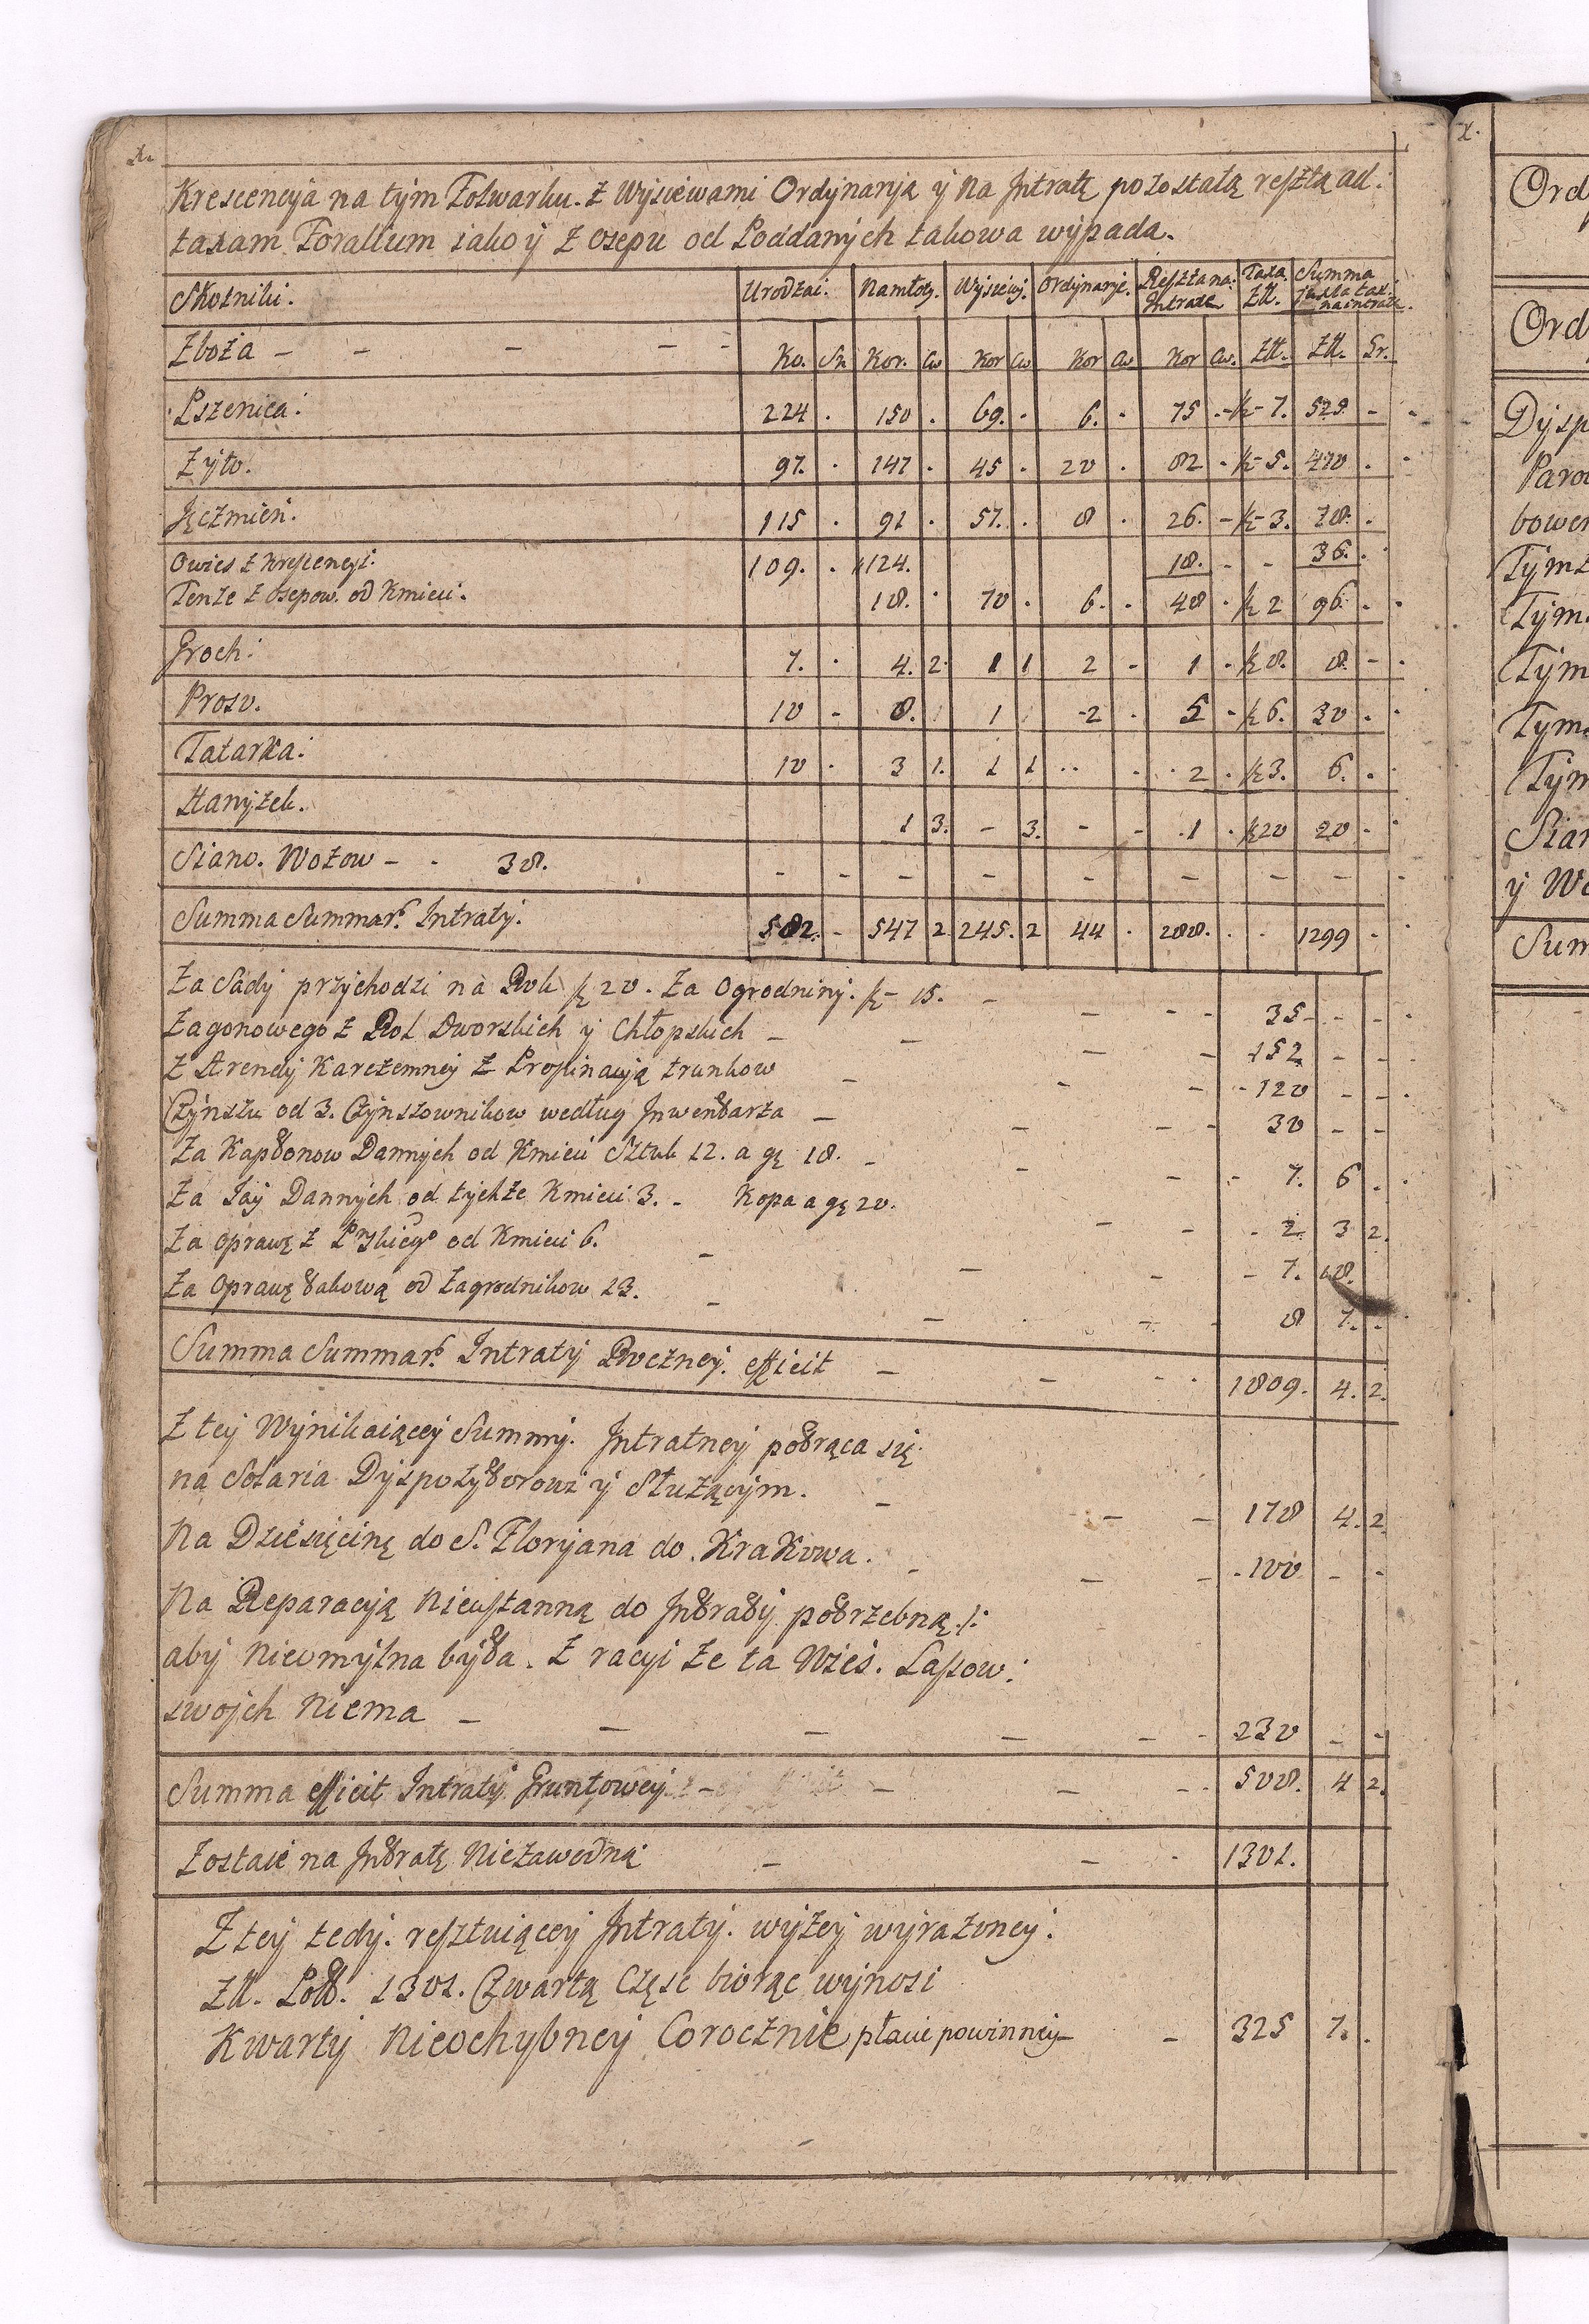 Krescencyja na tym Folwarku. z Wysiewami Ordynaryą y na Intratę pozostałą resztą ad:
taxam Foralium iako y z Osepu od Poddanych takowa wypada.
Skotniki. Urodzai. Namłoty. Wysiewy. Ordynarye. Reszta na: Intratę Taxa. Złł. Summa juxta tax: na intratę.
Zboża - - - - - Ko. Sn Kor. Cw Kor Cw Kor Cw Kor Cw. Złł. Złł. Gr.
Pszenica: 224 . 150 . 69. . 6. . 75 . - 7. 529. -
Zyto. 97. . 147 . 45 . 20 . 82 . - 5. 470 .
Jęczmien. 115 . 91 . 57. . 8 . 26. - - 3. 78. .
Owies z Krescencyi. 109. . 124. 18. - - 36. .
Tenże z osepow. od Kmieci. 18. . 70 . 6. . 48 . 2 96. .
Groch: 7. . 4. 2. 1 1 2 - 1 . 8. 8. -
Proso. 10 - 8. 1 -2 . 5 - 6. 30 .
Tatarka: 10 . 3 1. 1 1 .. . 2 . 3. 6. .
Hanyżek. 1 3. - 3. - - 1 . 20 20 .
Siano. Wozow - . 38. - - - - - - - -
Summa Summar. Intraty. 582. - 547 2 245. 2 44 . 288. . . 1299 -
Za Sady przychodzi na Rok 20. Za Ogrodniny. - 15. - - - - 35 - . -
Zagonowego z Rol Dworskich y Chłopskich - - - - 152 - -
Z Arendy Karczemney z Propinacyą trunkow - - - - 120 - -
Czynszu od 3. Czynszownikow według Inwentarza - - - - 30 - -
Za Kapłonow Dannych od Kmieci Sztuk 12. a gę 18. - - - - 7. 6 .
Za Jay Dannych od tychże Kmieci 3. - Kopa a gę 20. - - - 2. 3 2.
Za oprawę z od Kmieci 6. - - - - 7. 18.
Za Oprawę takową od Zagrodnikow 23. - - - - 8 7. .
Summa Summar. Intraty Roczney. efficit - - - . 1809. 4. 2.
Z tey Wynikaiącey Summy. Intratney potrąca się
na Solaria Dyspozytorowi y Służącym. - - - 178 4. 2
Na Dziesięcinę do S. Floryana do Krakowa. - - - 100 - -
Na Reparacyą nieustanną do Intraty potrzebną /:
aby nieomylna była. Z racyi że ta Wieś. Lasow:
swojch niema - - - - - - 230 - -
Summa efficit Intraty Gruntowey - - - - 508. 4 2.
Zostaie na Intratę Niezawodną - - . 1301.
Z tey tedy. resztuiącey Intraty. wyżey wyrażoney.
Złł. Pol. 1301. Czwartą Częsc biorąc wynosi
Kwarty Nieochybney Corocznie płacic powinney - - 325 7. .